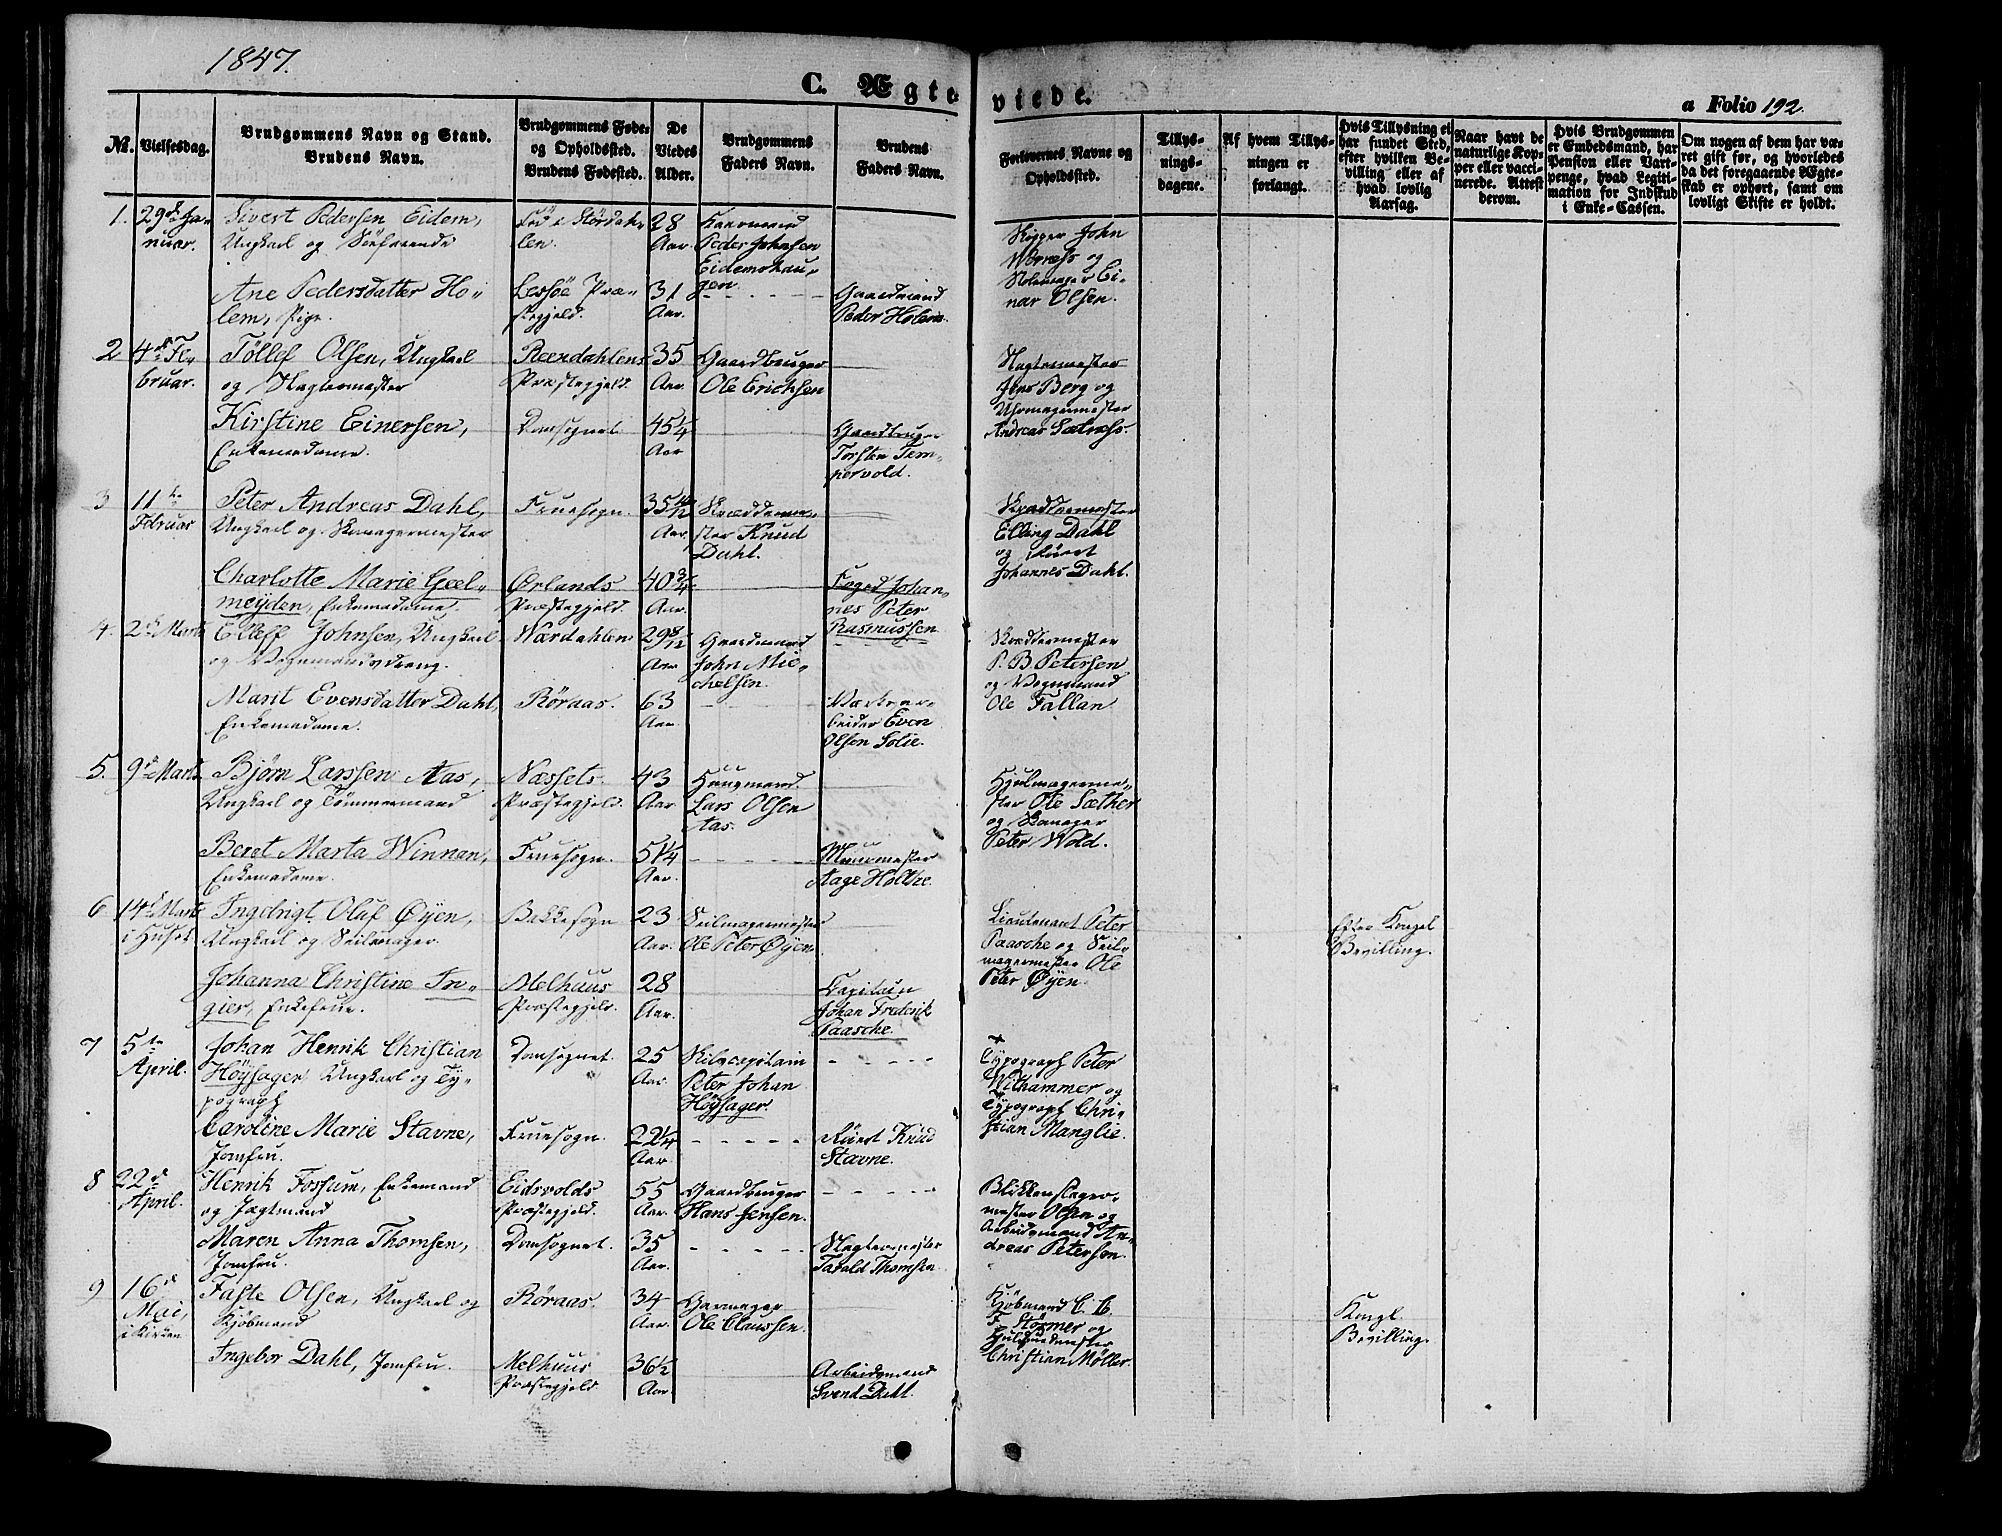 1847.
C. Ægteviede.
a Folio 192.
No.
Vielsesdag.
Brudgommens Navn og Stand.
Brudens Navn.
Brudgommens Føde-
og Opholdssted.
Brudens Fødested.
De
Viedes
Alder.
Brudgommens
Faders Navn.
Brudens
Faders Navn.
Forlovernes Navne og
Opholdssted.
Tillys-
nings-
dagene.
Af hvem Tillys-
ningen er
forlangt.
Hvis Tillysning ei
har fundet Sted,
efter hvilken Be-
villing eller af
hvad lovlig
Aarsag.
Naar havt de
naturlige Kop-
per eller vacci-
nerede. Attest
derom.
Hvis Brudgommen
er Embedsmand, har
Pension eller Vart-
penge, hvad Legiti-
mation for Indskud
i Enke-Cassen.
Om nogen af dem har væ-
ret gift før, og hvorledes
da det foregaaende Ægte-
skab er ophørt, samt om
lovligt Skifte er holdt.
1.
29de Ja-
nuar.
Sivert Pedersen Eidem,
Ungkarl og Søfarende
Fød i Størdah-
len.
28
Aar.
Huusmand
Peder Johnsen
Eidemshau-
gen.
Skipper John
Werness og
Einar Olsen.
Ane Pedersdatter Ho-
lem, Pige.
Lessøe Præ-
stegjeld.
31
Aar.
Gaardmand
Peder Holem.
2
4de Fe-
bruar.
Tøllef Olsen, Ungkarl
og Slagtermester
Reendahlens
Præstegjeld.
35
Aar.
Gaardbruger
Ole Erichsen
Slagtermester
Jens Berg og
Uhrmagermester
Andreas Sætness.
Kirstine Einersen,
Enkemadame.
Domsognet
45 1/4
Aar
Gaardbruger
Torsten Tem-
pervold.
3
11te
Februar
Peter Andreas Dahl,
Ungkarl og Skomagermester
Fruesogn.
35
Aar.
Skræddermester
Knud
Dahl.
Skræddermester
Elling Dahl
og
Johannes Dahl.
Charlotte Marie Geel-
meyden, Enkemadame.
Ørlands
Præstegjeld.
40 3/4
Aar.
Foged Johan-
nes Peter
Rasmussen
4.
2den Marts
Elleff Johnsen, Ungkarl
og Vognmandsdreng.
Værdahlen
29 8/12
Aar
Gaardmand
John Mic-
helsen.
Skræddermester
P. B. Petersen
og Vognmand
Ole Fallan
Marit Evensdatter Dahl,
Enkemadame.
Røraas.
63
Aar.
Værksar-
beider Even
Olsen Solie.
5.
9de Marts
Bjørn Larssen Aas,
Ungkarl og Tømmermand
Næssets
Præstegjeld.
43
Aar.
Huusmand
Lars Olsen
Aas.
Hjulmagerme-
ster Ole Sæther
og Skomager
Peter Wold.
Beret Marta Winnan,
Enkemadame.
Fruesogn.
51 1/4
Aar.
Muurmester
Aage Holthe.
6
14de Marts
i Huset
Ingebrigt Olaf Øyen,
Ungkarl og Seilmager.
Bakkesogn
23
Aar.
Seilmagermester
Ole Peter Øyen.
Lieutenant Peter
Paasche og Seil-
magermester Ole
Peter Øyen.
Efter Kongel
Bevilling.
Johanna Christine In-
gier, Enkefrue.
Melhuus
Præstegjeld.
28
Aar.
Capitain
Johan Frederik
Paasche.
7
5te
April.
Johan Henrik Christian
Høysager Ungkarl og Ty-
pograph
Domsognet.
25
Aar.
Skibscapitain
Peter Johan
Høysager.
Typograph Peter
Withammer og
Typograph Chri-
stian Manglie.
Caroline Marie Stavne,
Jomfru.
Fruesogn.
22 1/4
Aar.
Knud
Stavne.
8
22de
April.
Henrik Fossum, Enkemand
og Jægtmand
Eidsvolds
Præstegjeld.
55
Aar.
Gaardbruger
Hans Jensen.
Blikkenslager-
mester Olsen og
Arbeidsmand An-
dreas Petersen.
Maren Anna Thomsen,
Jomfru.
Domsognet.
35
Aar.
Slagtermester
Tarald Thomsen
9
16de
Mai,
i Kirken
Faste Olsen, Ungkarl og
Kjøbmand
Røraas.
34
Aar.
Garmager
Ole Claussen.
Kjøbmand C. C.
F. Størmer og
Guldsmedmester
Christian Møller.
Kongl.
Bevilling.
Ingebor Dahl, Jomfru.
Melhuus
Præstegjeld.
36 1/2
Aar.
Arbeidsmand
Svend Dahl.